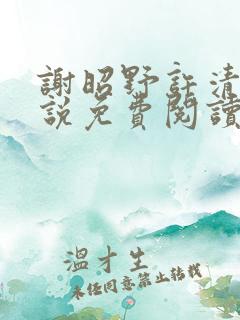 謝昭野許清
說免費閱讀
溫才生
未经同意禁止转载